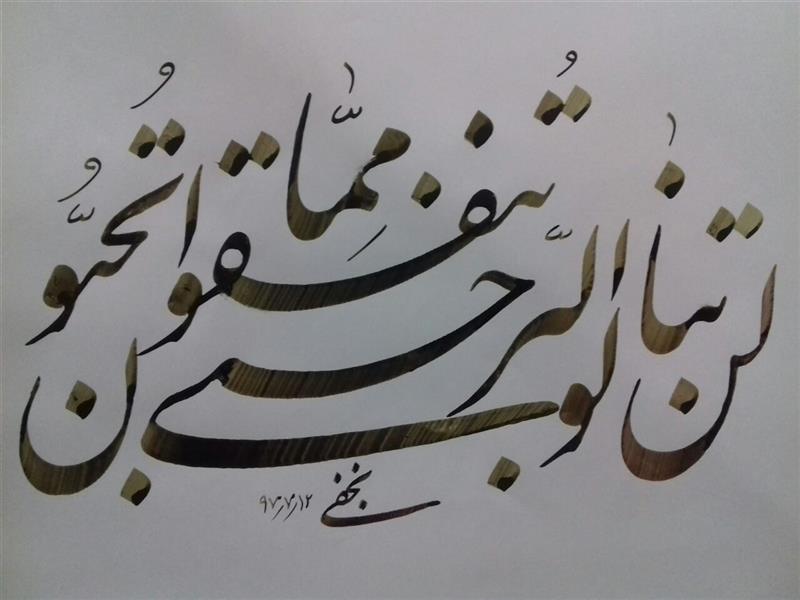 لن تنالوا البرّ حتی تنفقوا ممّا تُحبّون
نجفی ۹۷٫۷٫۱۲